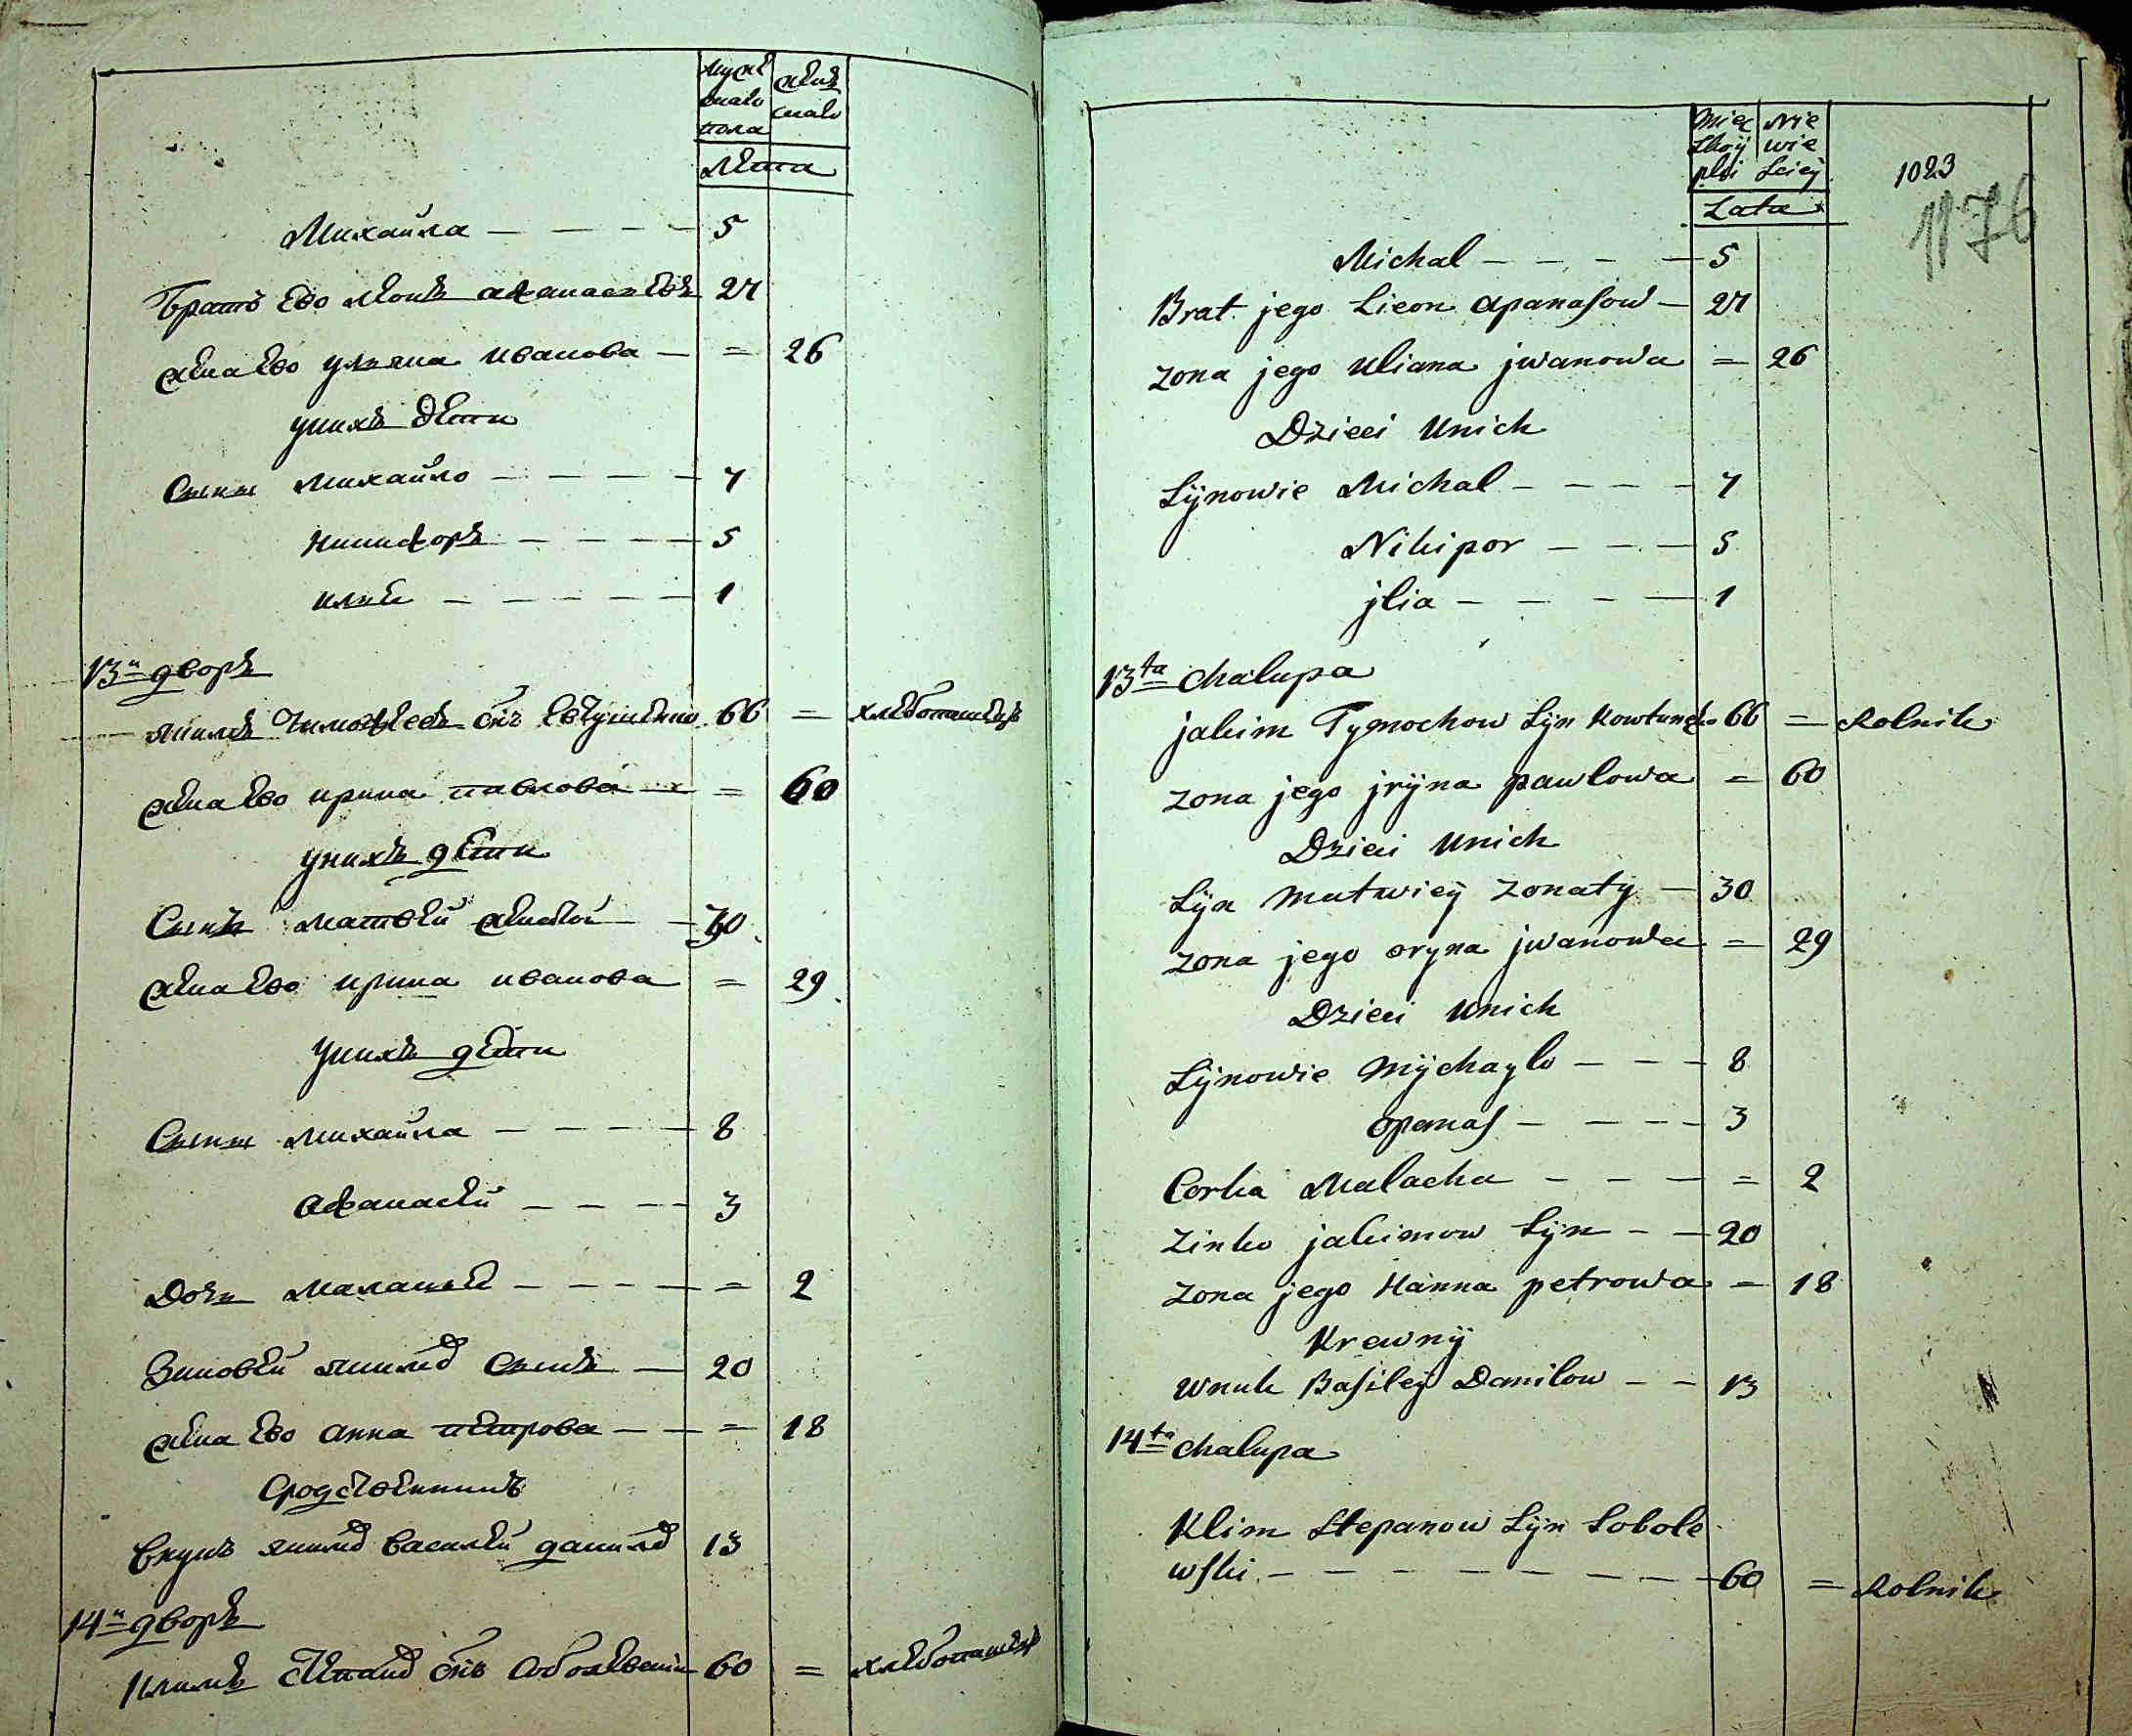 муже
скаго
пола
жен
скаго
лета
Михайла — — — — 5
Братъ его леонъ афанасьевъ 27
жена его ульяна иванова — = 26
унихъ дети
Сыны михайло — — — — 7
никифоръ — — — — 5
илья — — — — — 1
13й дворъ
Тимофеевъ снъ 66 = хлебопашецъ
жена его ирина павлова — = 60
унихъ дети
Сынъ матвей женатой — 30
жена его ирина иванова = 29
Унихъ дети
Сыны михайла — — — — 8
афанасей — — — — 3
Дочь маланья — — — — = 2
Зиновей якимов Сынъ — 20
жена его анна петрова — — = 18
Сродственникъ
внукъ якимов василей данилов 13
14й дворъ
Климъ степанов снъ соболевский 60 = хлебопашецъ
Męz
skoÿ
płci
Nie
wie
sciey
Lata
1023
1176
Michal — — — — 5
Brat jego Lieon apanasow — 27
zona jego Uliana jwanowa = 26
Dzieci Unich
Sÿnowie Michal — — — — 7
Nikipor — — — 5
jlia — — — — 1
13ta chalupa
jakim Tymochow Sÿn 66 = Rolnik
zona jego jrÿna pawlowa = 60
Dzieci Unich
Sÿn Matwieÿ zonaty — 30
zona jego oryna jwanowa = 29
Dzieci Unich
Sÿnowie Mÿchaylo — — — 8
opanas — — — — 3
Corka Malacha — — — = 2
Zinko jakimow Sÿn — — 20
zona jego Hanna petrowa = 18
Krewnÿ
wnuk Basileÿ Danilow — — 13
14ta chalupa
Klim Stepanow Sÿn Sobole
wski — — — — — — — — 60 = Rolnik